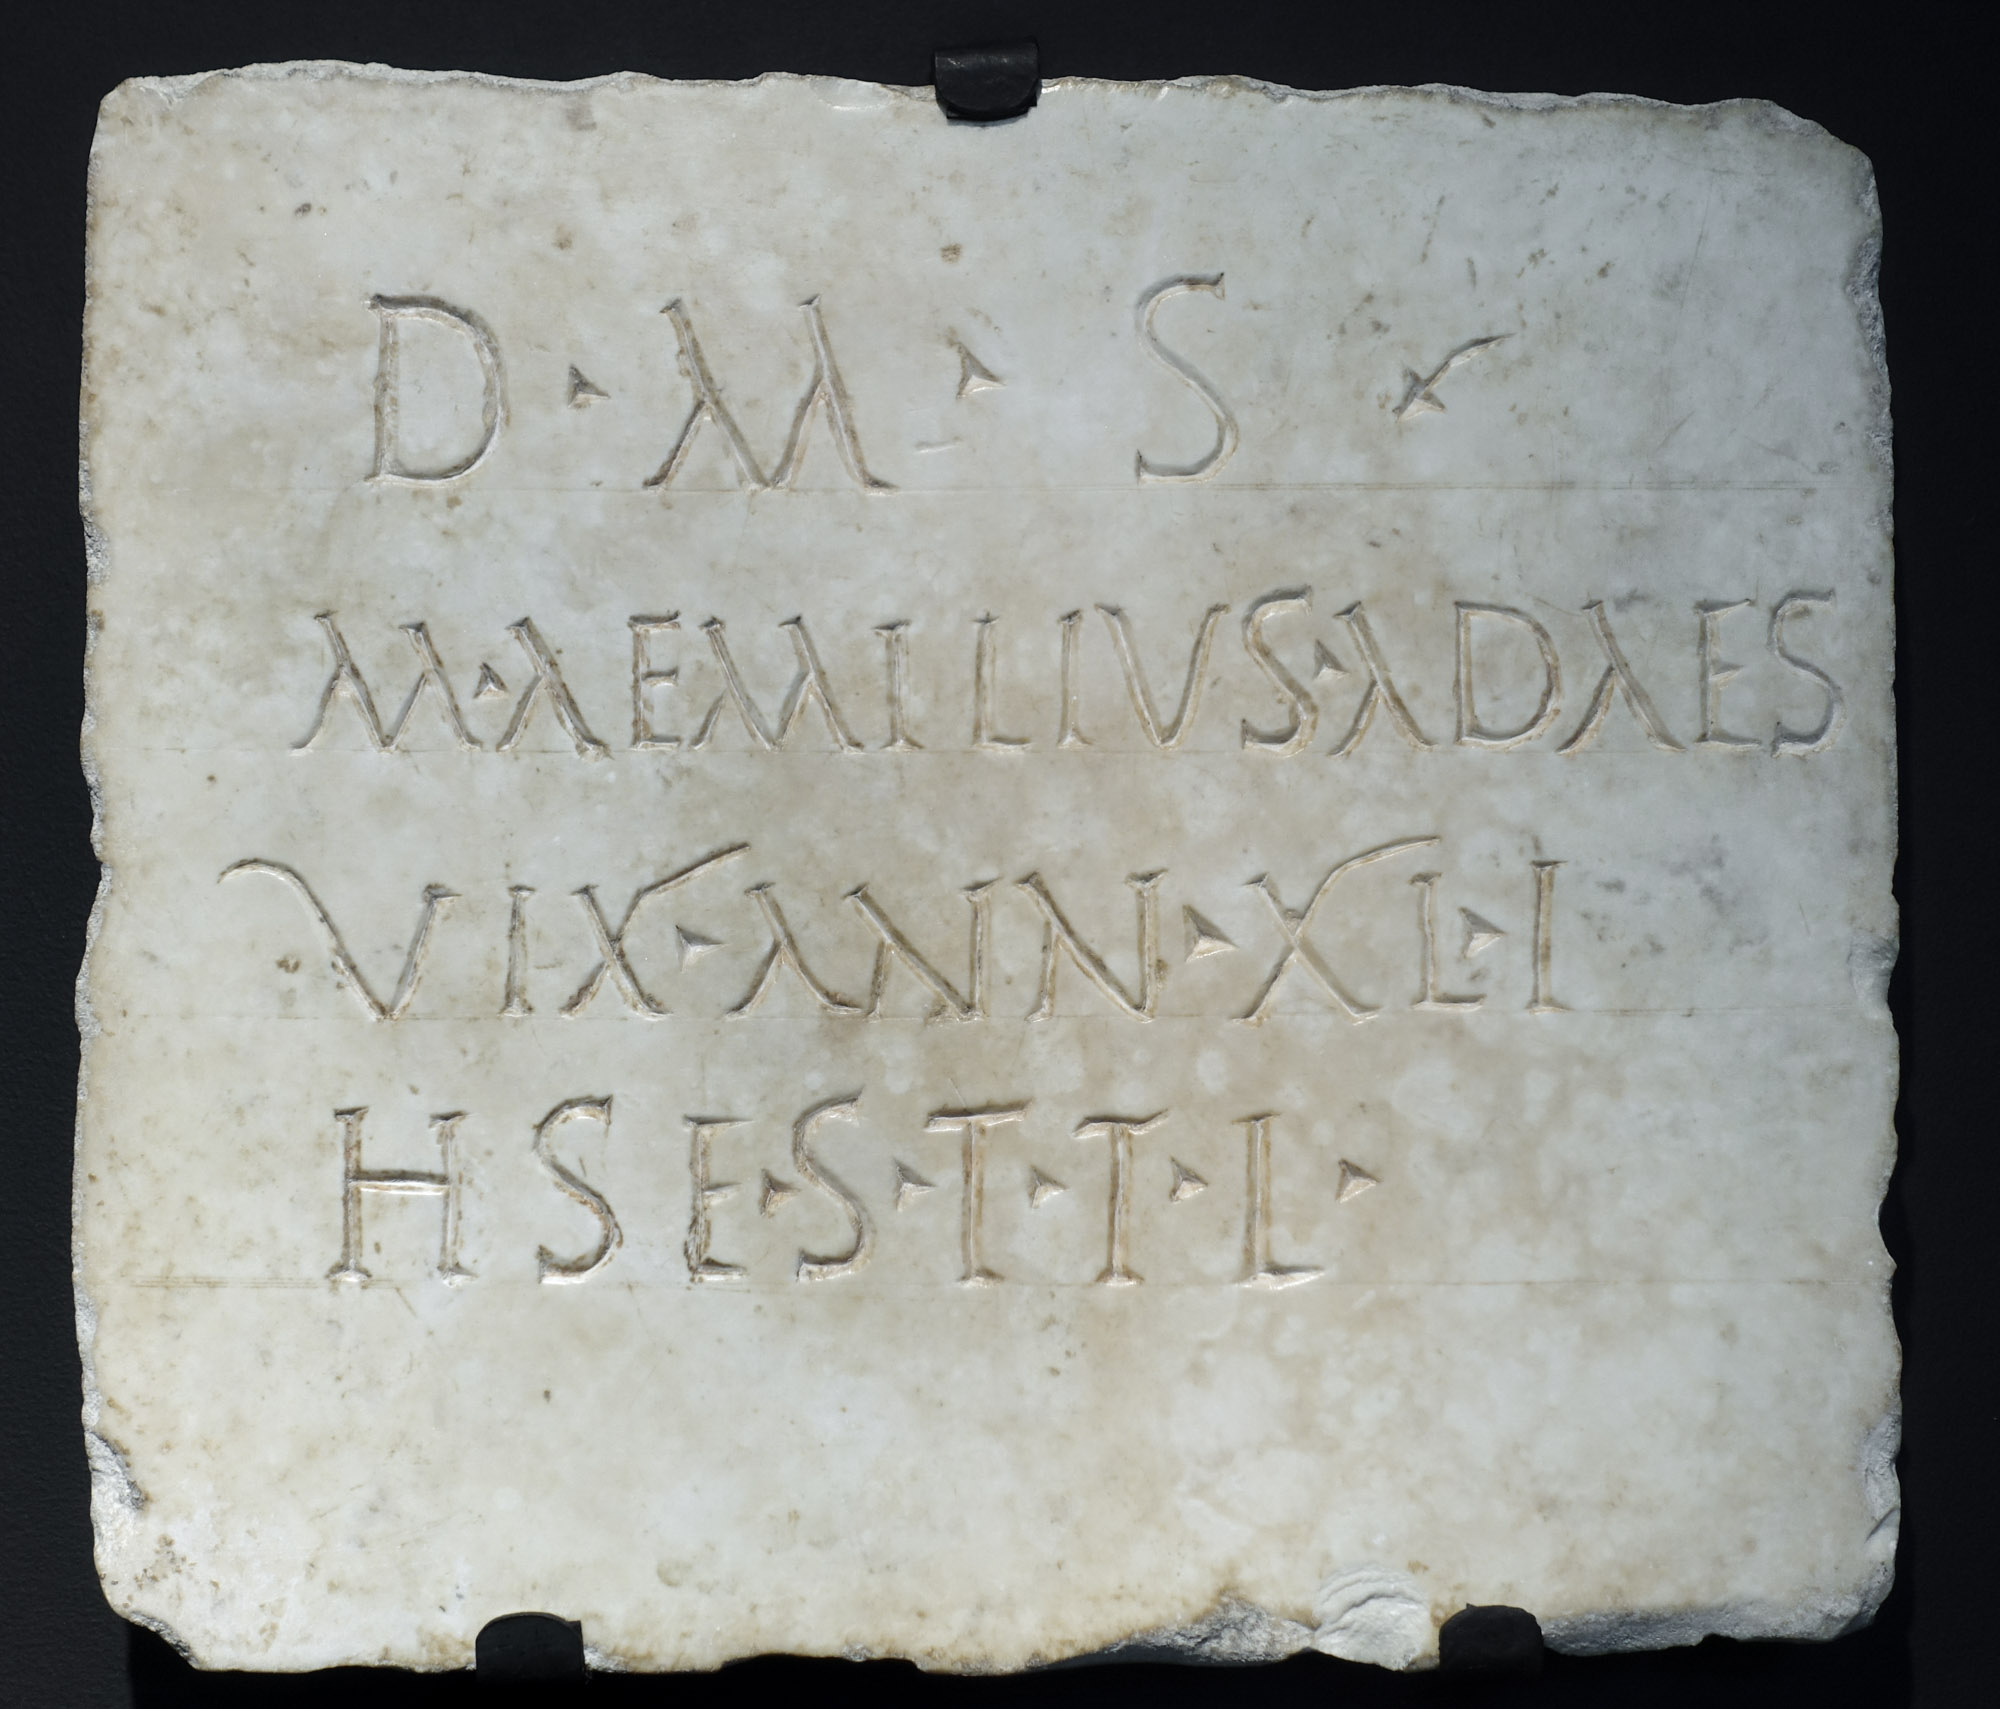 D · M · S ·
M · AEMILIUS · ADAES
VIX · ANN · XL · I
H S E · S · T · T · L ·